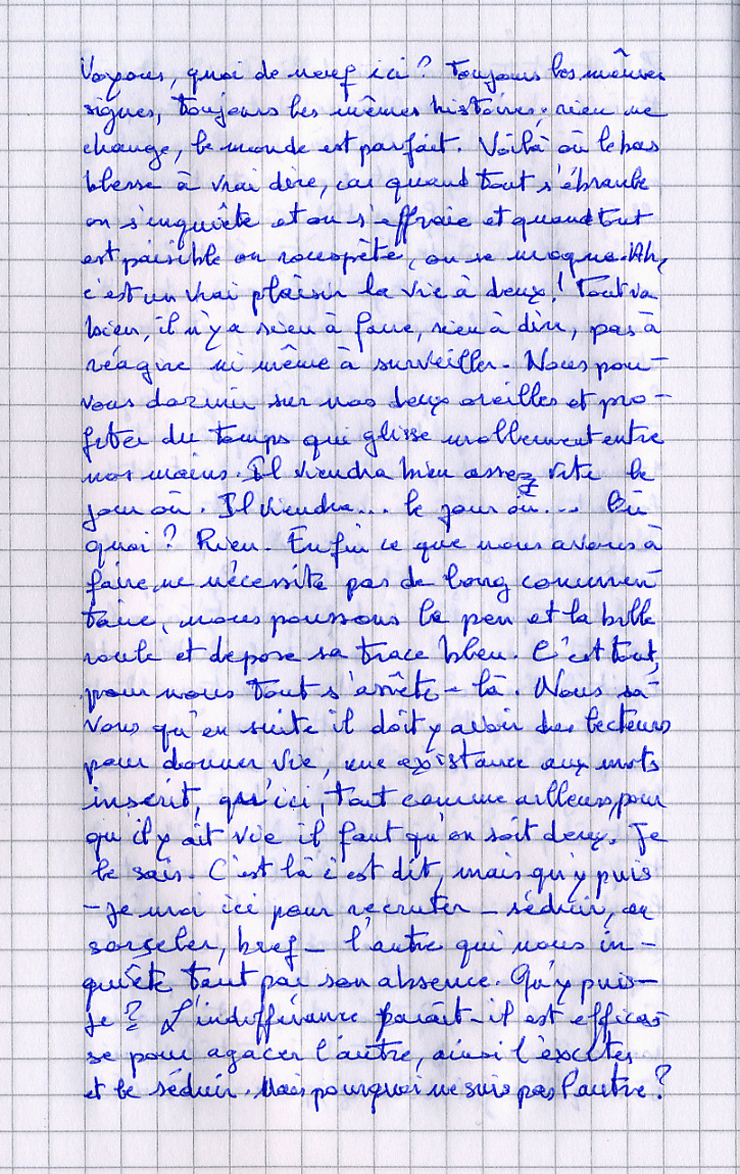 Voyons, quoi de neuf ici? Toujours les mêmes
signes, toujours les mêmes histoires; rien ne
change, le monde est parfait. Voilà où le bas
blesse à vrai dire, car quand tout s'ébranle
on s'inquiète et on s'effraie et quand tout
est paisible on rouspète, on se moque. Ah,
c'est un vrai plaisir la vie à deux! Tout va
bien, il n'y a rien à faire, rien à dire, pas à
réagir ni même à surveiller. Nous pou-
vons dormir sur nos deux oreilles et pro-
fiter du temps qui glisse mollement entre
nos mains. Il viendra bien assez vite le
jour où. Il viendra... le jour où... Où
quoi? Rien. Enfin ce que nous avons à
faire ne nécessite pas de long commen-
taire, nous poussons le pen et la bille
roule et dépose sa trace bleu. C'est tout,
pour nous tout s'arrête-là. Nous sa-
vons qu'en suite il doit y avoir des lecteurs
pour donner vie, une existance aux mots
inscrit, qu'ici, tout comme ailleurs, pour
qu'il y ait vie il faut qu'on soit deux. Je
le sais. C'est là c'est dit, mais qu'y puis
-je moi ici pour recruter - séduir, en
sorceler, bref - l'autre qui nous in-
quiète tant par son absence. Qu'y puis-
je? L'indifférance paraît-il est efficas
se pour agacer l'autre, ainsi l'exciter
et le séduir. Mais pourquoi ne suis pas l'autre?